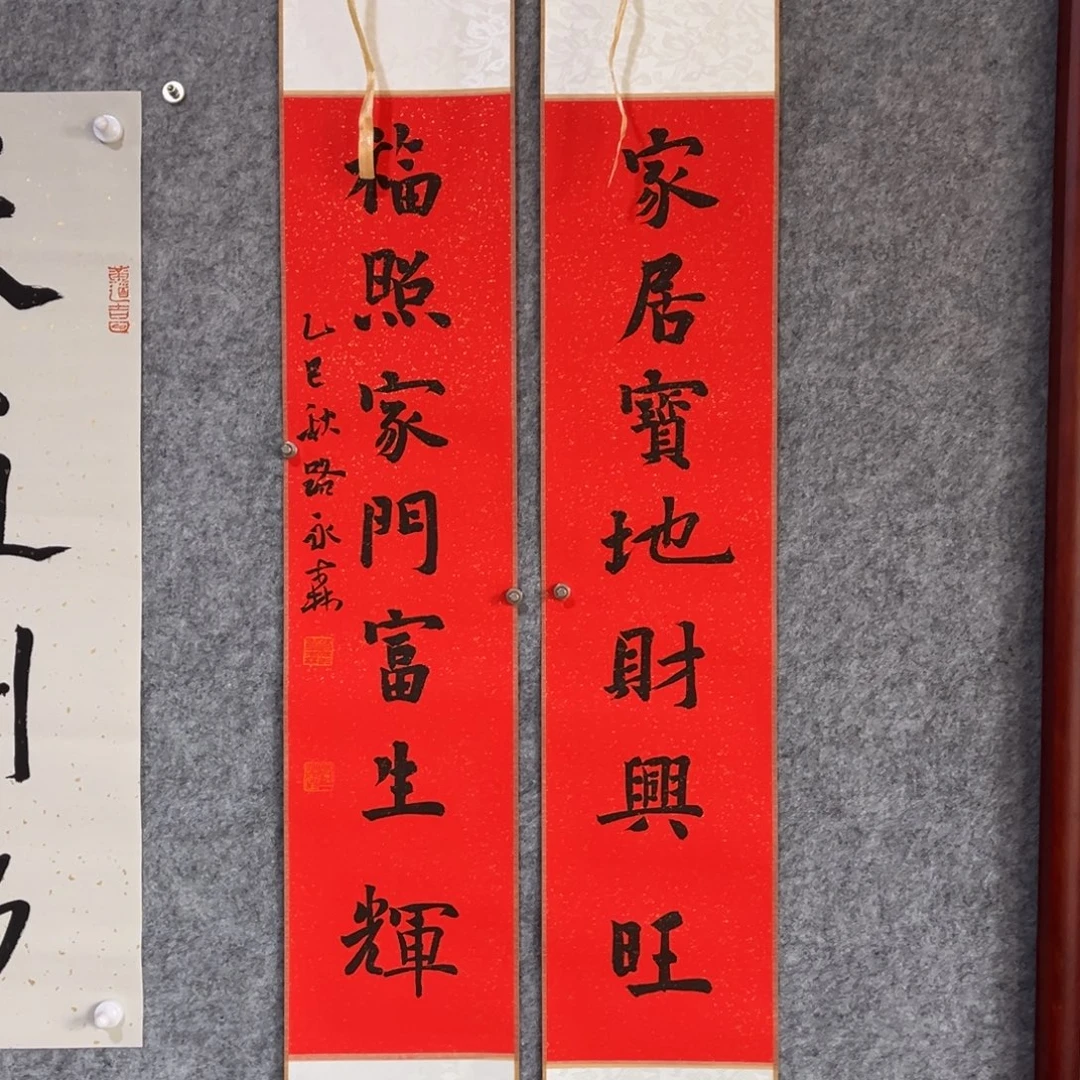 家居寶地財興旺
福照家門富生輝
乙巳秋路永森